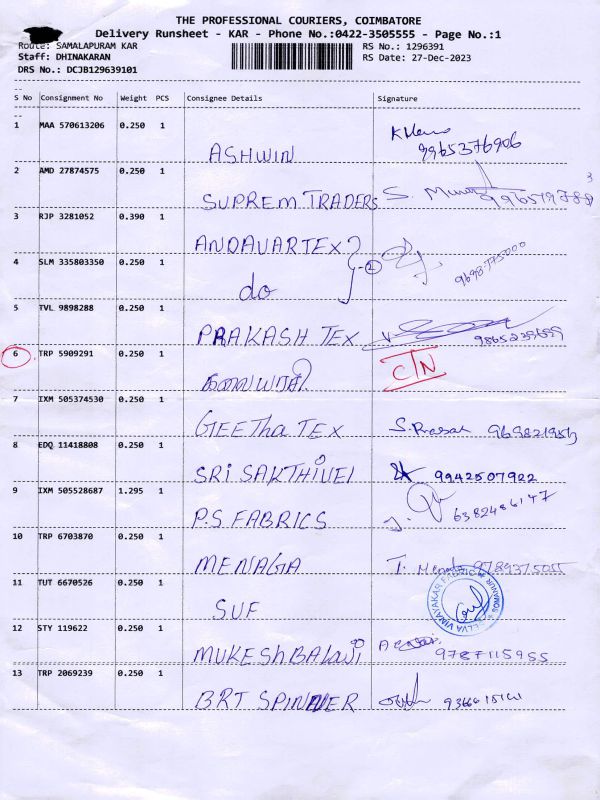 THE PROFESSIONAL COURIERS, COIMBATORE
Delivery Runsheet - KAR - Phone No.:0422-3505555 - Page No.:1
Route: SAMALAPURAM KAR RS No.: 1296391
Staff: DHINAKARAN RS Date: 27-Dec-2023
DRS No.: DCJB129639101
S No Consignment No Weight PCS Consignee Details Signature
1 MAA 570613206 0.250 1
ASHWIN 9965376906
2 AMD 27874575 0.250 1
SUPREM TRADERS S.
3 RJP 3281052 0.390 1
ANDAVAR TEX
4 SLM 335803350 0.250 1
do 2
5 TVL 9898288 0.250 1
PRAKASH TEX
6 TRP 5909291 0.250 1
C/N
7 IXM 505374530 0.250 1
GEETHA TEX S.
8 EDQ 11418808 0.250 1
SRI SAKTHIVEL 9942507922
9 IXM 505528687 1.295 1
P.S FABRICS 6382486147
10 TRP 6703870 0.250 1
MENAGA T. 9789375055
11 TUT 6670526 0.250 1
SUF VINAYAKAR FABRIC
12 STY 119622 0.250 1
MUKESH BALAJI 9787115955
13 TRP 2069239 0.250 1
BRT SPINNER